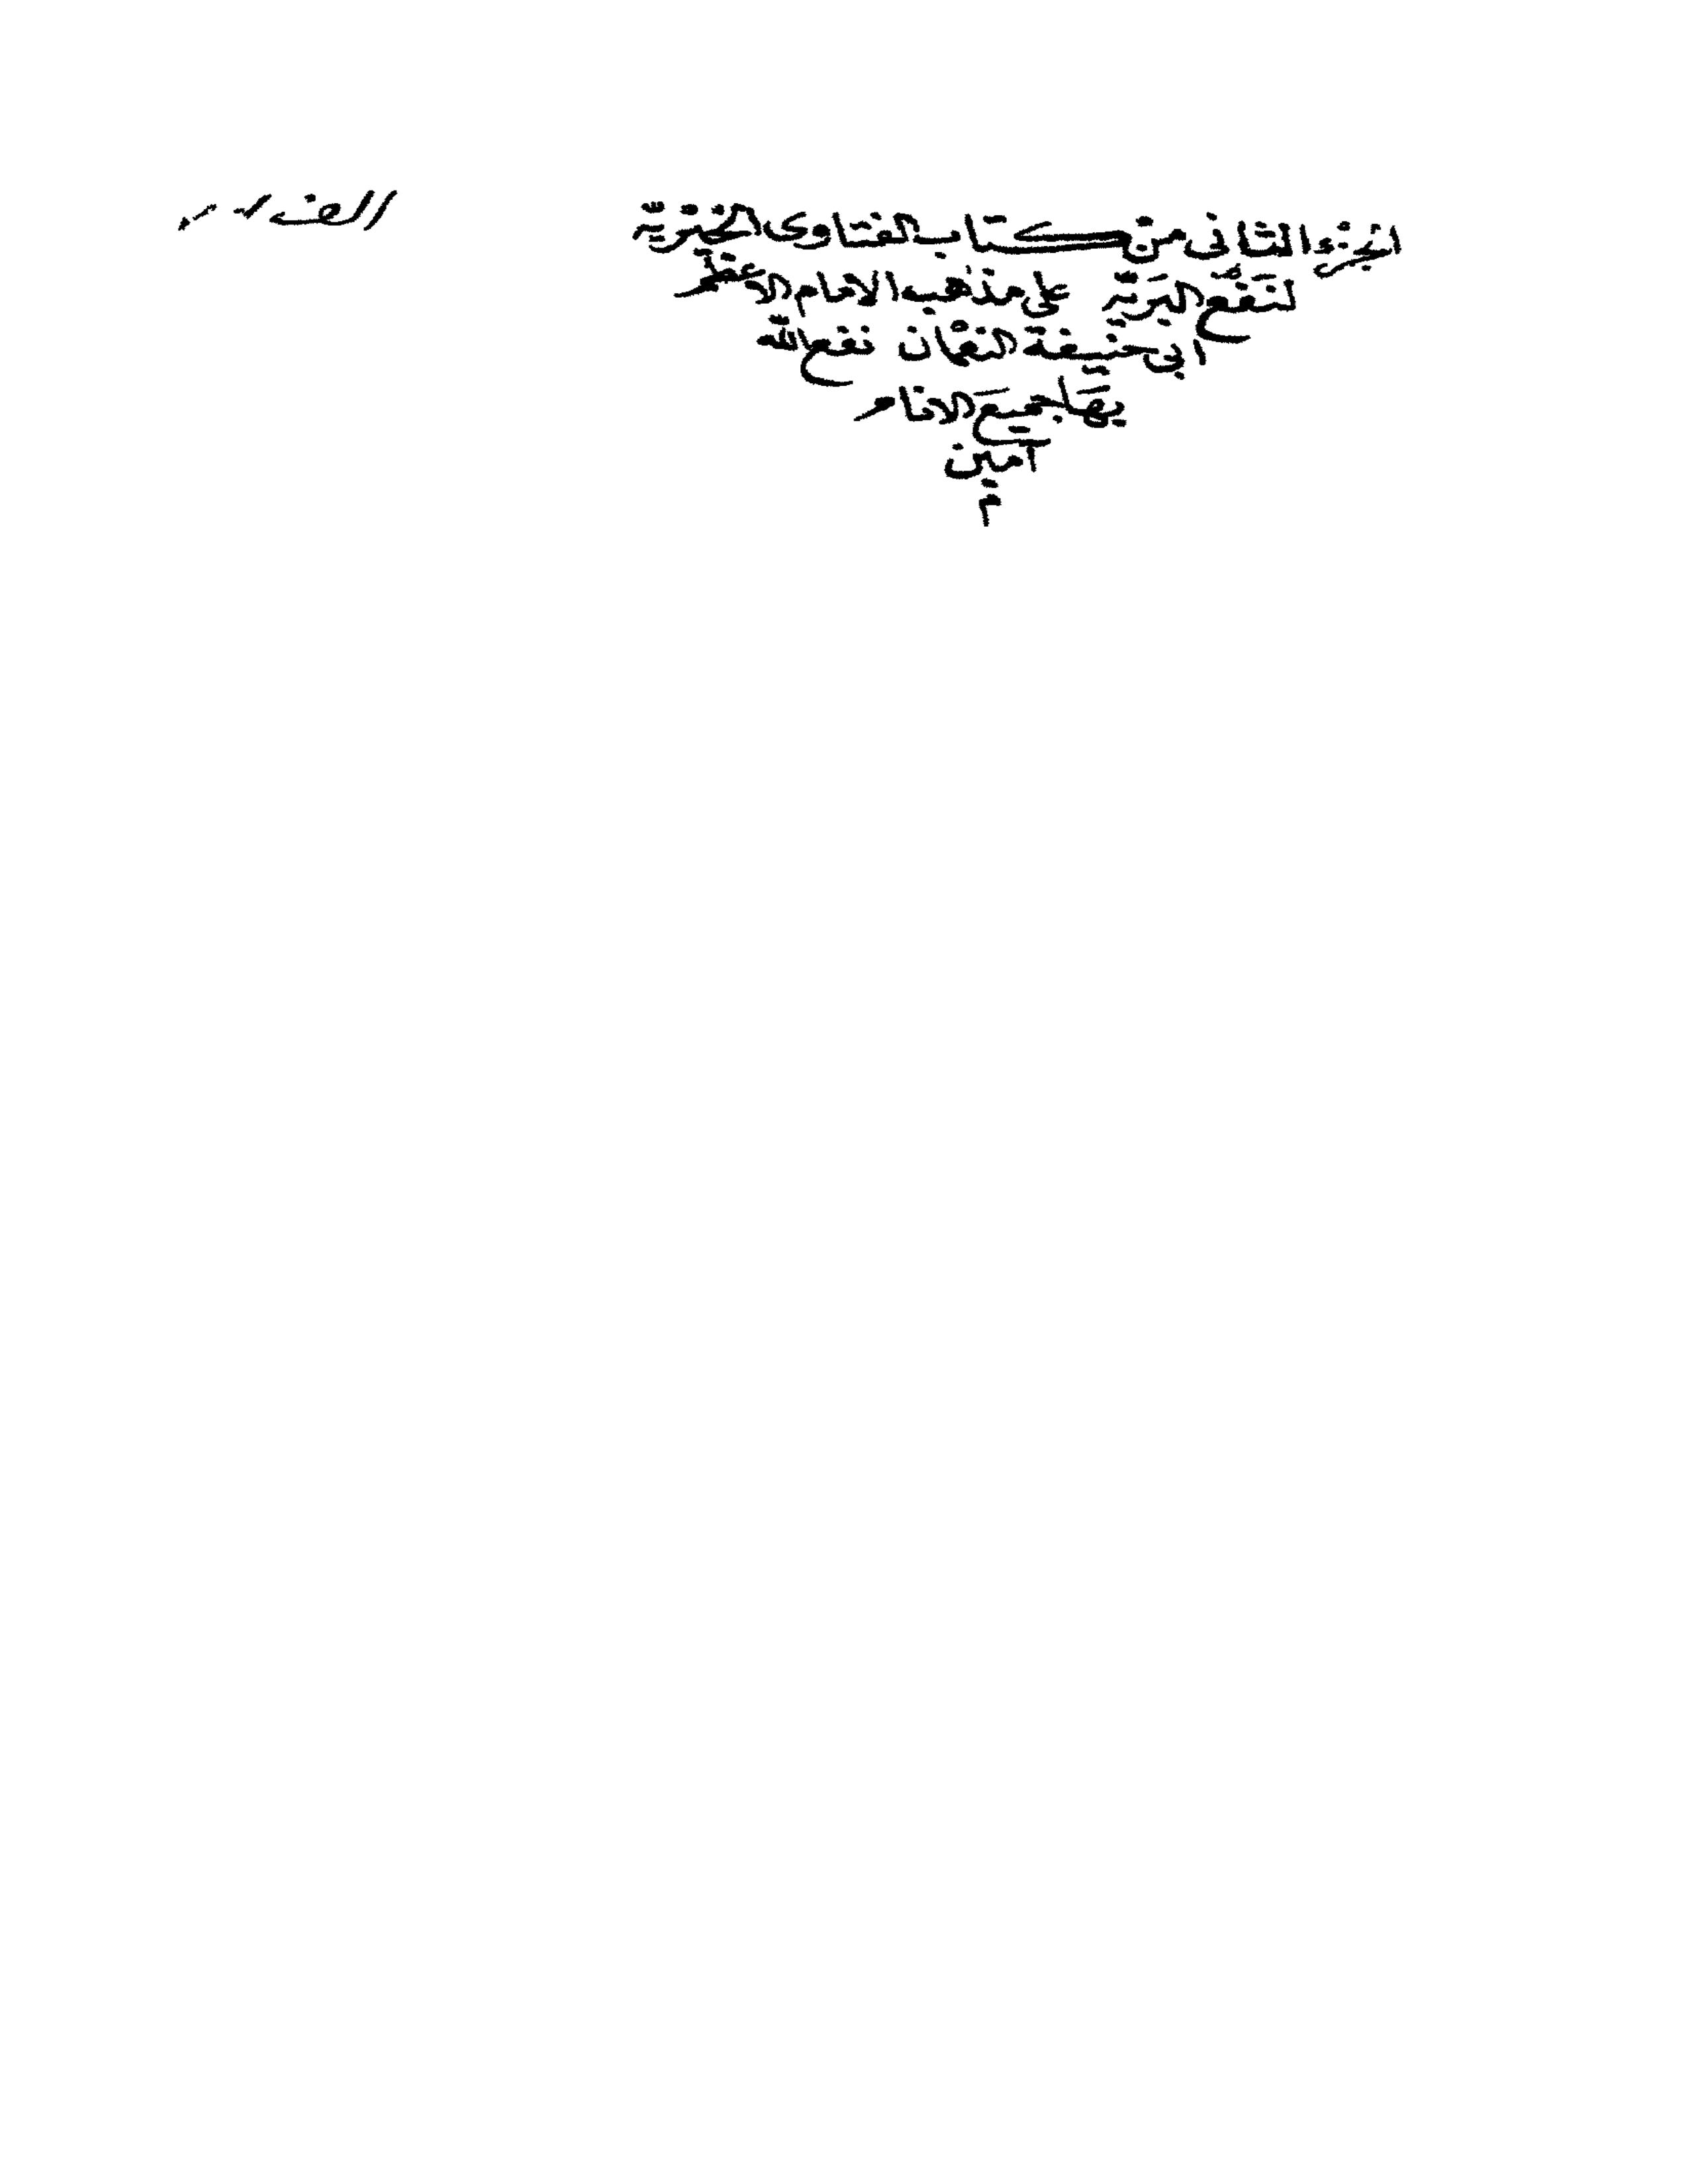 الجزء الثانى من كتاب الفتاوى الخيريّة
لنفع البريّة على مذهب الامام الاعظم
ابى حنيفة النعمان نفع الله
بها جميع الانام
آمين
م